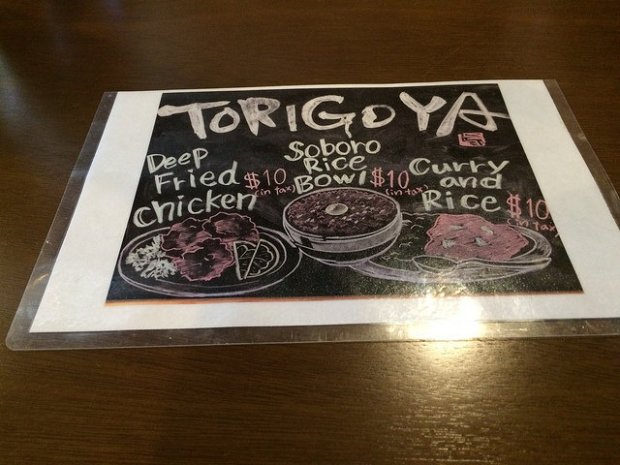 TORIGOYA
Deep
Fried
chicken
$10
(in tax)
Soboro
Rice
Bowl
$10
(in tax)
Curry
and
Rice
$10
(in tax)